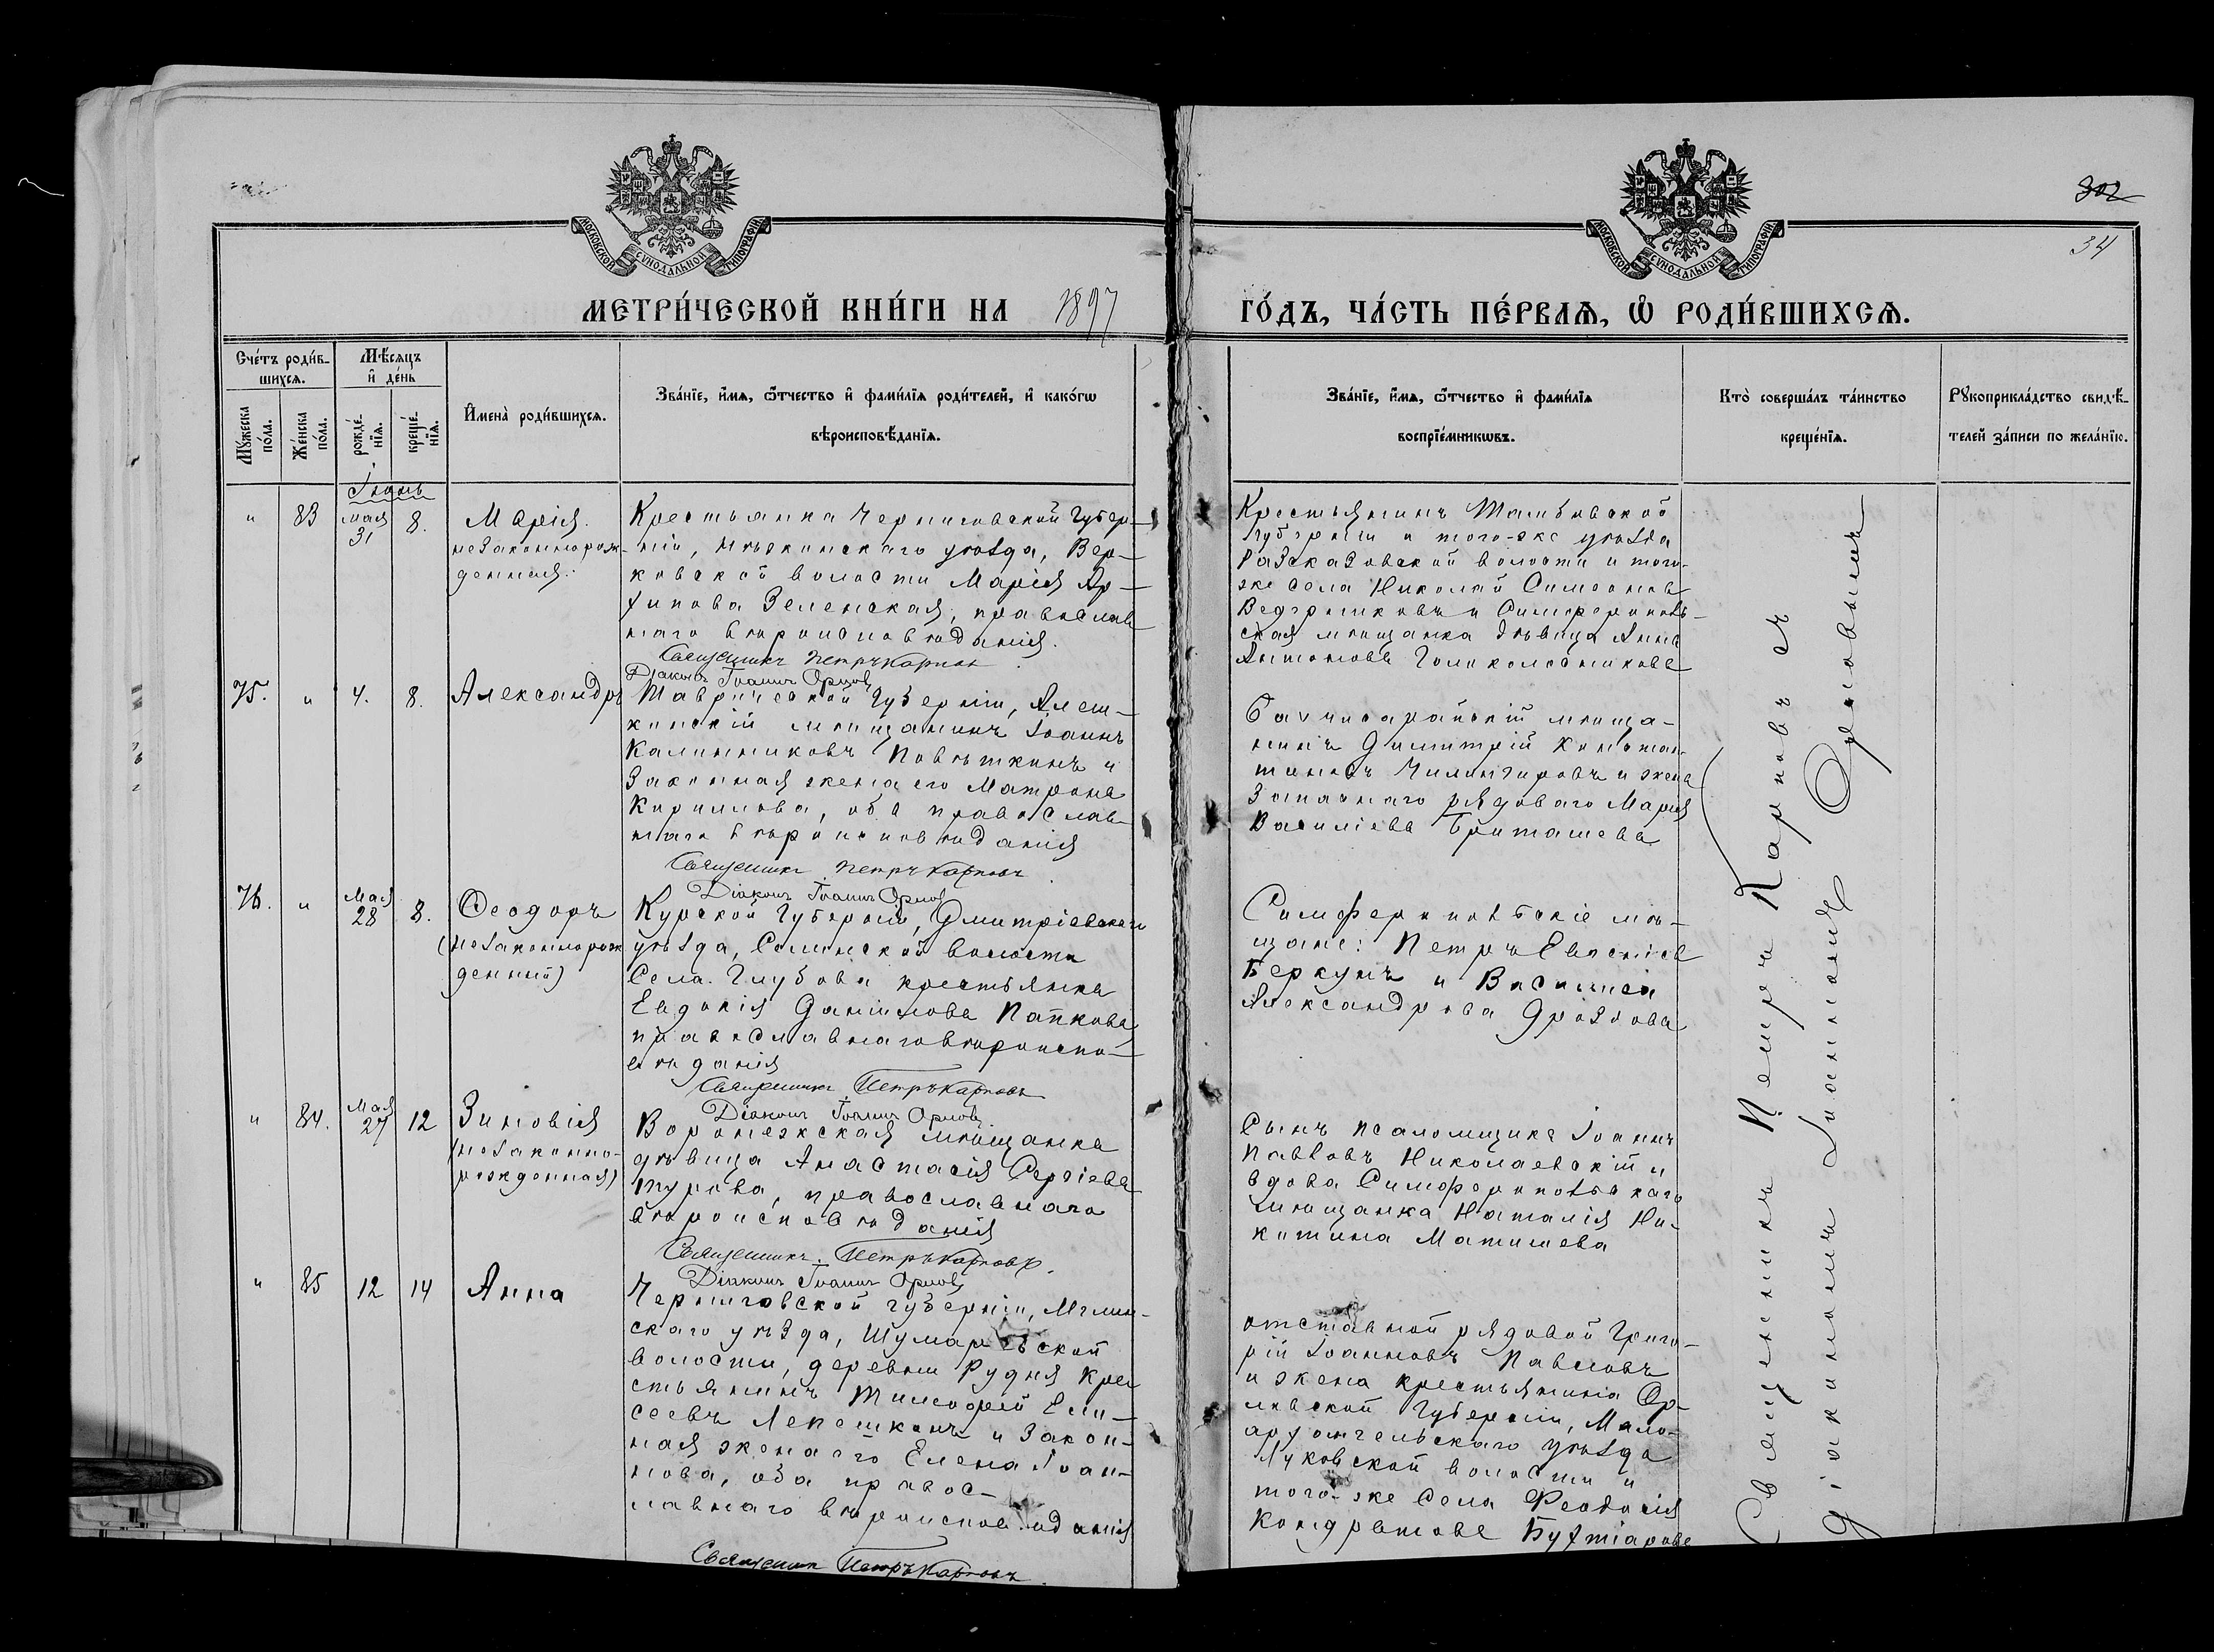 302
34
МОСКОВСКОЙ СѴНОДАЛЬНОЙ ТИПОГРАФІИ
МОСКОВСКОЙ СѴНОДАЛЬНОЙ ТИПОГРАФІИ
МЕТРИ́ЧЕСКОЙ КНИ́ГИ НА 1897 ГО́ДЪ, ЧА́СТЬ ПЕ́РВАѦ, Ѽ РОДИ́ВШИХСѦ.
Сче́тъ роди́в-
шихсѧ.
Мꙋ́жеска по́ла.
Же́нска по́ла.
Мѣ́сѧцъ
и҆ де́нь
рожде́-
нїѧ.
креще́-
нїѧ.
И҆мена̀ роди́вшихсѧ.
Зва́нїе, и҆́мѧ, ѻ҆́тчество и҆ фами́лїѧ роди́телей, и҆ како́гѡ
вѣроисповѣ́данїѧ.
Зва́нїе, и҆́мѧ, ѻ҆́тчество и҆ фами́лїѧ
воспрїе́мникѡвъ.
Кто̀ соверша́лъ та́инство
креще́нїѧ.
Рꙋкоприкла́дство свидѣ́-
телей за́писи по жела́нїю.
Іюнь
" 83 мая 31 8.
Марія.
незаконнорож-
денная.
Крестьянка Черниговской Губер-
ніи, уѣзда, Вер-
ковской волости Марія Ар-
хипова Зеленская, православ
наго вѣроисповѣданія.
Священникъ Петръ Карпов
Діаконъ Іоаннъ Орлов
Крестьянинъ Тамбовской
губерніи и того-же уѣзда
Разсказовской волости и того-
же села Николай Симеонов
Ведерниковъ и Симферополь-
ская мѣщанка дѣвица Анна
Антонова Голиколосникова
75. " 4. 8. Александръ
Таврической Губерніи, Алеш-
кинскій мѣщанинъ Іоаннъ
Калинниковъ Повѣткинъ и
законная жена его Матрона
Кириллова, оба православ-
наго вѣроисповѣданія
Священникъ Петръ Карповъ
Діаконъ Іоаннъ Орлов
Бахчисарайскій мѣща-
нинъ Димитрій Констан-
тиновъ Чилингировъ и жена
запаснаго рядоваго Марія
Василіева Бриташева
76. " Мая 28 8.
Ѳеодоръ
(незаконнорож
денный)
Курской Губерніи, Дмитріевскаго
уѣзда, волости
Села Глубова крестьянка
Евдокія Даніилова Папкова
православнаго вѣроиспо-
вѣданія
Священникъ Петръ Карповъ
Діаконъ Іоаннъ Орлов
Симферопольскіе мѣ-
щане: Петръ
Беркунъ и Василиса
Александрова Дроздова
" 84. Мая 27 12
Зиновія
(незаконно-
рожденная)
Воронежская мѣщанка
дѣвица Анастасія Сергіева
Турова, православнаго
вѣроисповѣданія
Священникъ Петръ Карповъ.
Діаконъ Іоаннъ Орлов
Сынъ псаломщика Іоаннъ
Павловъ Николаевскій и
вдова Симферопольскаго
мѣщанка Наталія Ни-
китина Матишева
" 85 12 14 Анна
Черниговской губерніи, Мглин-
скаго уѣзда, Шумаровской
волости, деревни Рудня Кре
стьянинъ Тимофей Ели-
сеевъ Лепешкинъ и закон-
ная жена его Елена Іоан-
нова, оба правос-
лавнаго вѣроисповѣданія
Священник Петръ Карповъ
отставной рядовой Григо-
рій Іоанновъ Павловъ
и жена крестьянина Ор-
ловской Губерніи, Мало-
архангельскаго уѣзда
Луковской волости и
того-же Села Феодосія
Кондратова Бухтіарова
Священникъ Петръ Карповъ съ
діакономъ Іоанномъ Орловымъ